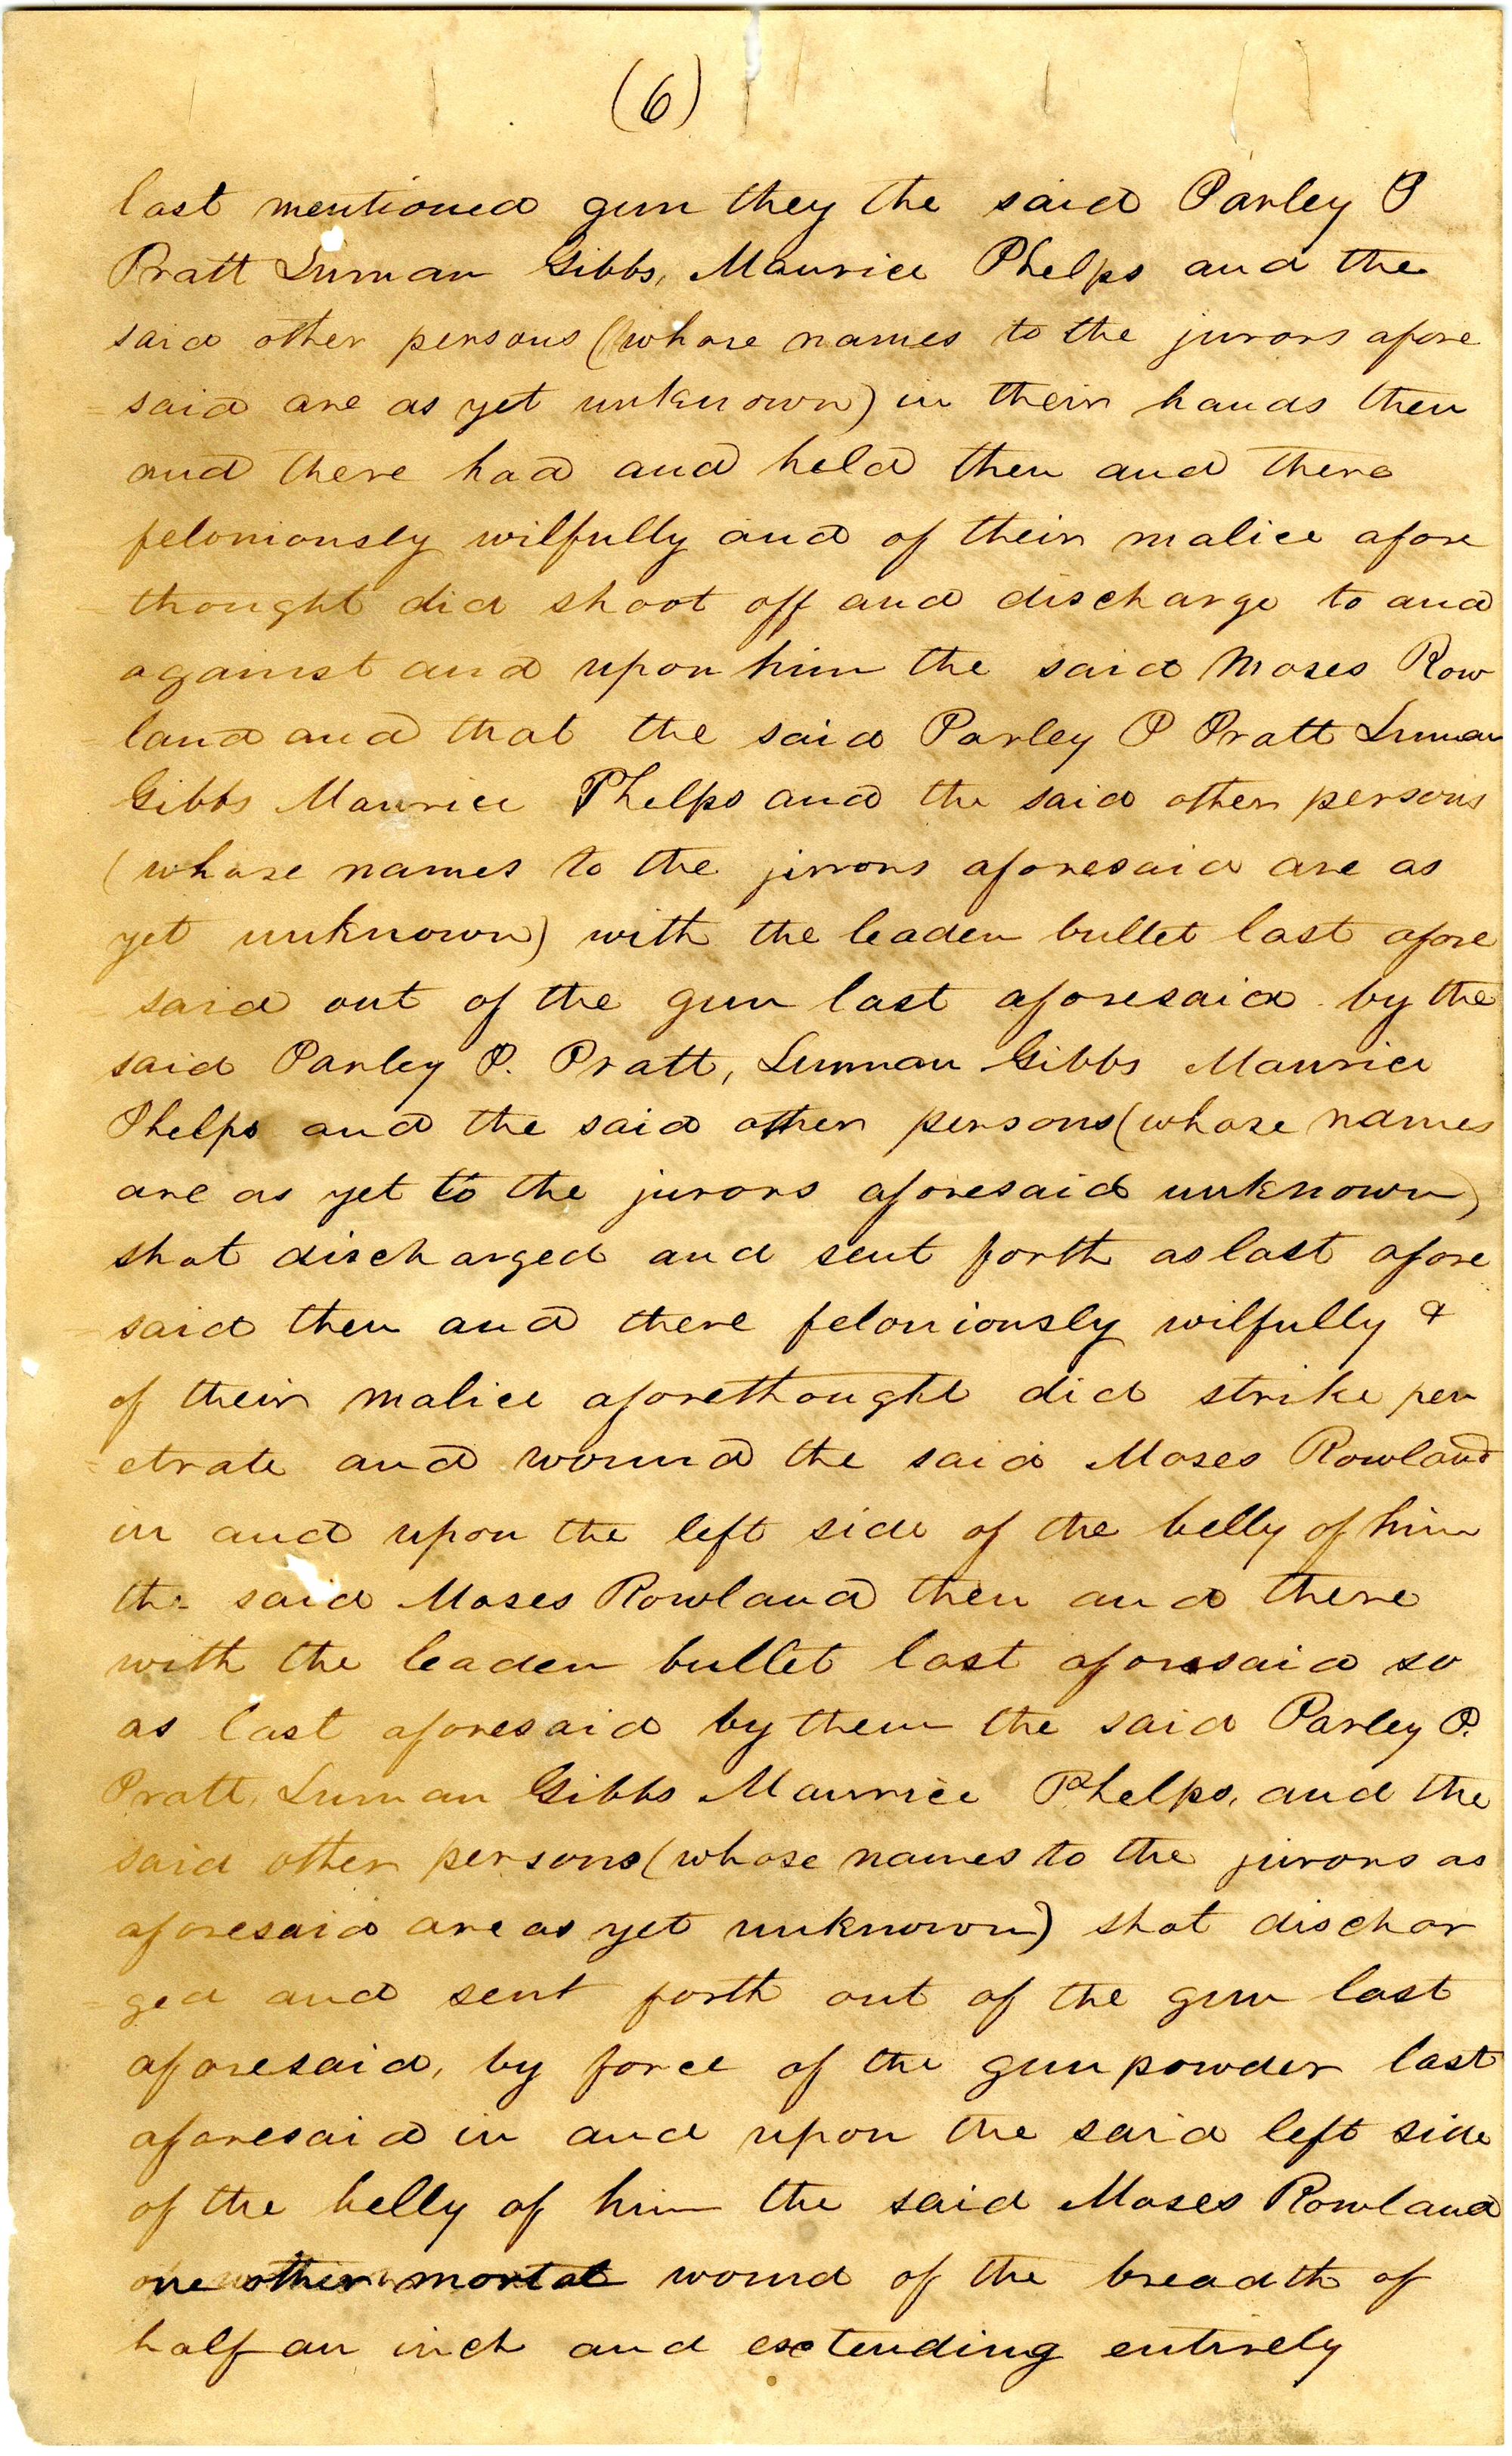 (6)
last mentioned gun they the said Parley P
Pratt Luman Gibbs, Maurice Phelps and the
said other persons (whose names to the jurors afore
=said are as yet unknown) in their hands then
and there had and held then and there
feloniously wilfully and of their malice afore
=thought did shoot off and discharge to and
against and upon him the said Moses Row
=land and that the said Parley P Pratt Luman
Gibbs Maurice Phelps and the said other persons
(whose names to the jurors aforesaid are as
yet unknown) with the leaden bullet last afore
=said out of the gun last aforesaid by the
said Parley P. Pratt, Luman Gibbs Maurice
Phelps and the said other persons (whose names
are as yet to the jurors aforesaid unknown)
shot discharged and sent forth as last afore
=said then and there feloniously wilfully &
of their malice aforethought did strike pen
=etrate and wound the said Moses Rowland
in and upon the left side of the belly of him
the said Moses Rowland then and there
with the leaden bullet last aforesaid so
as last aforesaid by them the said Parley P.
Pratt, Luman Gibbs Maurice Phelps, and the
said other persons (whose names to the jurors as
aforesaid are as yet unknown) shot dischar
=ged and sent forth out of the gun last
aforesaid, by force of the gun powder last
aforesaid in and upon the said left side
of the belly of him the said Moses Rowland
one other mortal wound of the breadth of
half an inch and extending entirely